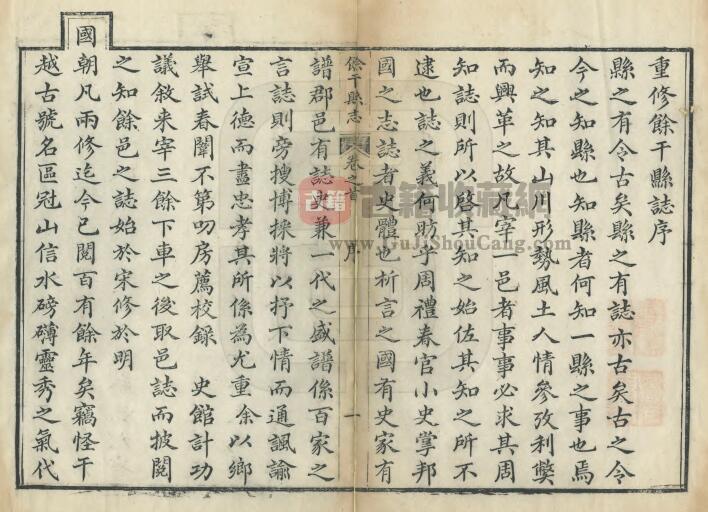 重修餘干縣誌序
縣之有令古矣縣之有誌亦古矣古之令
今之知縣也知縣者何知一縣之事也焉
知之知其山川形勢風土人情參攷利獘
而興革之故凡宰一邑者事事必求其周
知誌則所以啓其知之始佐其知之所不
逮也誌之義何昉乎周禮春官小史掌邦
國之志誌者史體也析言之國有史家有
餘干縣志
卷之首
序
一
譜郡邑有誌史兼一代之盛譜係百家之
言誌則旁搜博採將以抒下情而通諷諭
宣上德而盡忠孝其所係為尤重余以鄉
舉試春闈不第四房薦校錄 史館計功
議敘来宰三餘下車之後取邑誌而披閱
之知餘邑之誌始於宋修於明
國朝凡兩修迄今已閱百有餘年矣竊怪干
越古號名區冠山信水磅礴靈秀之氣代
古籍
古籍收藏网
www.GuJiShouCang.com